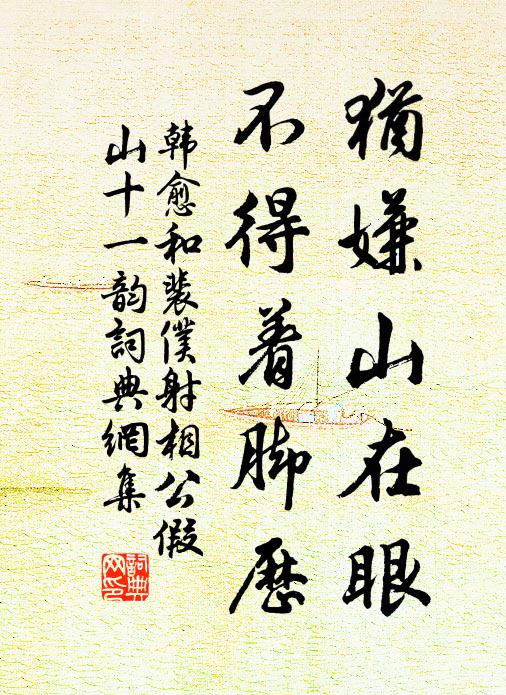 猶嫌山在眼
不得着脚歷
韓愈和裴僕射相公假
山十一韵詞典網集
詞典
网印